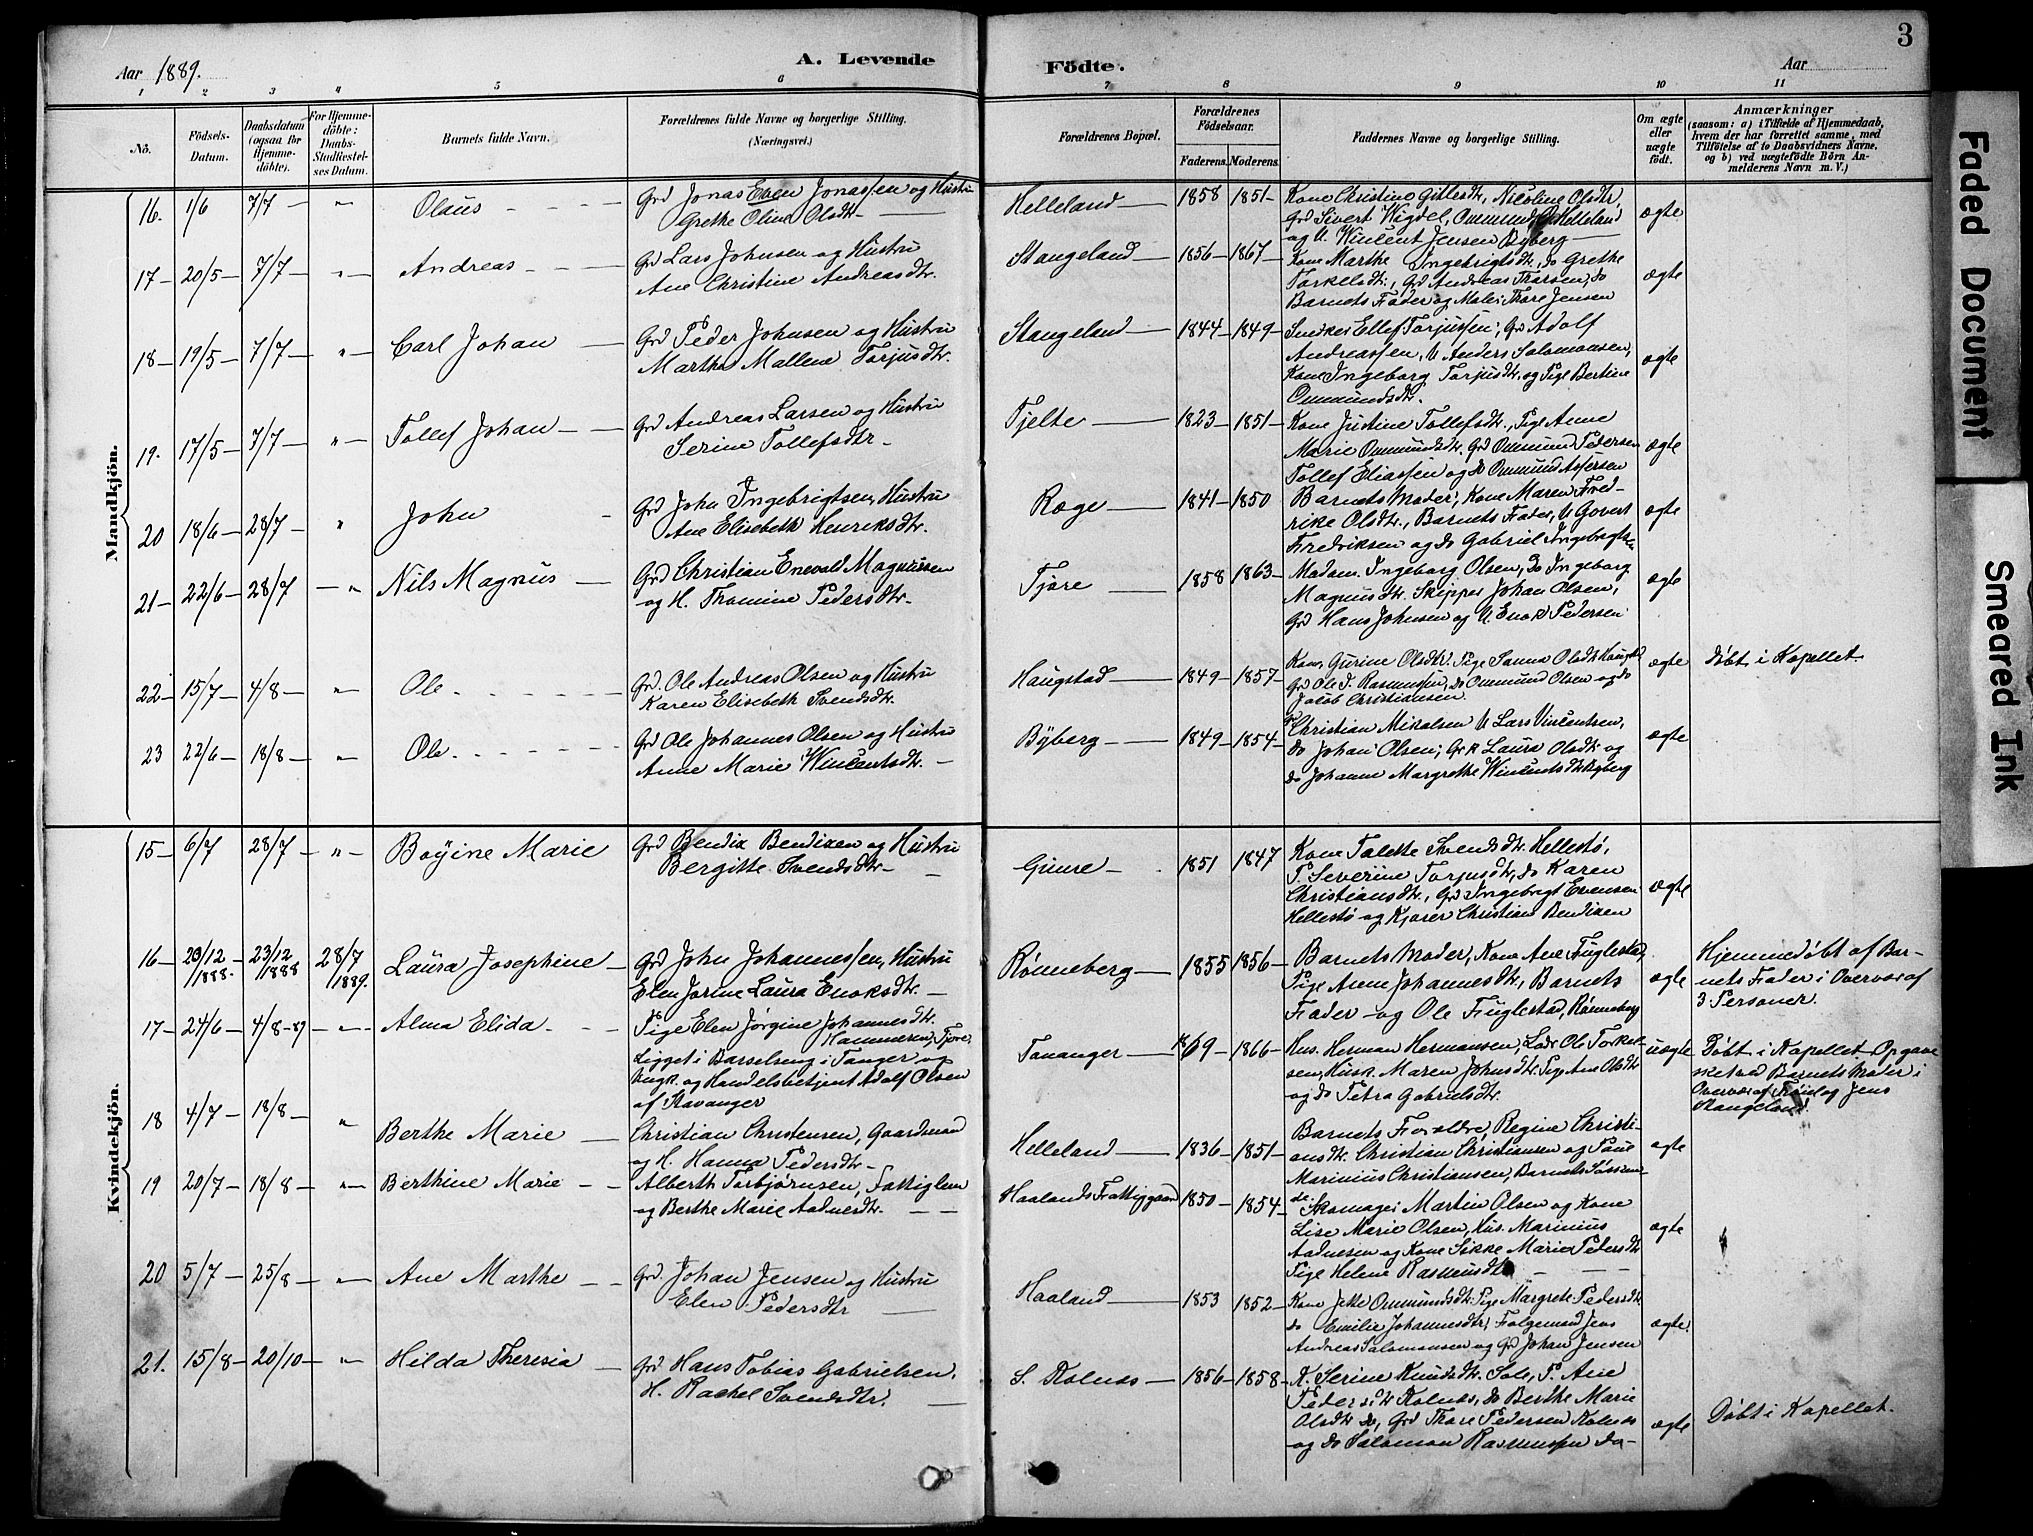 Aar 1889.
A. Levende
Födte.
Aar
3
1 2 3 4 5 6 7 8 9 10 11
No.
Födsels-Datum.
Daabsdatum (ogsaa for Hjemmedöbte).
For Hjemmedöbte: Daabs-Stadfæstelses Datum.
Barnets fulde Navn.
Forældrenes fulde Navne og borgerlige Stilling.
(Næringsvei.)
Forældrenes Bopæl.
Forældrenes Födselsaar.
Faderens. Moderens.
Faddernes Navne og borgerlige Stilling.
Om ægte eller uægte födt.
Anmærkninger
(saasom: a) i Tilfælde af Hjemmedaab, hvem der har forrettet samme, med Tilföielse af to Daabsvidners Navne, og b) ved uægtefödte Börn Anmelderens Navn m. V.)
Mandkjön.
16. 1/6 7/7 — " Olaus
Grd Jonas Even Jonassen og Hustru
Grethe Oline Olsdtr.
Helleland — 1858 1851 —
Kone Christine Gitlesdtr, Nicoline Olsdtr,
Grd Sivert Wigdel, Ommund Helleland
og U. Wincent Jensen Byberg —
ægte
17 — 20/5 — 7/7 — " Andreas
Grd Lars Johnsen og Hustru
Ane Christine Andreasdtr.
Stangeland — 1856 — 1867 —
Kone Marthe Ingebrigtsdtr, do Grethe
Torkelsdtr., Grd Andreas Thorsen, do
Barnets Fader og Maler Thore Jensen
ægte
18 — 19/5 — 7/7 — " Carl Johan —
Grd Peder Johnsen og Hustru
Marthe Mallene Torjusdtr.
Stangeland — 1844 — 1849 —
Snedker Ellef Torjussen, Grd Adolf
Andreassen, U Anders Salomonsen,
Kone Ingeborg Torjusdtr. og Pige Bertine
Ommundsdtr.
ægte
19. 17/5 — 7/7 — " Tollef Johan —
Grd Andreas Larsen og Hustru
Serine Tollefsdtr —
Tjelte — 1823 — 1851 —
Kone Justine Tollefsdtr., Pige Anne
Marie Ommundsdtr. Grd Ommund Pedersen
Tollef Eliassen og do Ommund Assersen
ægte
20 18/6 — 28/7 — " John
Grd John Ingebrigtsen, Hustru
Ane Elisabeth Henriksdtr.
Ræge — 1841 — 1850
Barnets Moder, Kone Maren Fred-
rike Olsdtr., Barnets Fader, U Govert
Fredriksen og do Gabriel Ingebrigtsen
ægte
21 — 22/6 — 28/7 — " Nils Magnus —
Grd Christian Enevald Magnussen
og H. Thomine Pedersdtr.
Tjøre — 1858 1863 —
Madam Ingeborg Olsen, do Ingeborg
Magnusdtr. Skipper Johan Olsen,
Grd Hans Johnsen og U. Enok Pedersen
ægte
22 — 15/7 — 4/8 — " Ole
Grd. Ole Andreas Olsen og Hustru
Karen Elisabeth Svendsdtr.
Haugstad — 1849 — 1857 —
Kone Gurine Olsdtr. Pige Sanna Olsdtr Haugstad
Grd Ole T. Rasmussen, do Ommund Olsen og do
Jacob Christiansen
ægte
Døbt i Kapellet.
23 22/6 — 18/8 — " Ole
Grd Ole Johannes Olsen og Hustru
Anne Marie Wincentsdtr. —
Byberg — 1849 — 1854 —
Christian Mikalsen U Lars Vincentsen,
do Johan Olsen, Grk Laura Olsdtr og
do Johanne Margrethe Wincentsdtr Byberg
ægte
Kvindekjön.
15 — 6/7 28/7 — " Boyine Marie
Grd Bendix Bendixen og Hustru
Bergitte Svendsdtr —
Gimre — 1851 1847
Kone Talette Svendsdtr. Hellestø,
P. Severine Torjusdtr, do Karen
Christiansdtr., Grd Ingebregt Evensen
Hellestø og Kjører Christian Bendixen
ægte
16 — 20/12 1888 — 23/12 1888 28/7 1889. Laura Josephine —
Grd John Johannessen, Hustru
Elen Jorine Laura Enoksdtr. —
Rønneberg — 1855 1856 —
Barnets Moder, Kone Ane Fuglestad,
Pige Anne Johannesdtr., Barnets
Fader — og Ole Fuglestad, Rønneberg
ægte
Hjemmedøbt af Bar-
nets Fader i Overvær af
3 Personer.
17 — 24/6 — 4/8-89 — " — Alma Elida
Pige Elen Jørgine Johannesdtr.
Hammersen, Tjøre,
Ligget i Barselseng i Tanger og
Ungk. og Handelsbetjent Adolf Olsen
af Stavanger
Tananger — 1869 — 1866 —
Hus. Herman Hermansen, Lods Ole Torkel-
sen, Husk. Maren Johnsdtr. Pige Ane Olsdtr
og do Petra Gabrielsdtr.
uægte
Døbt i Kapellet. Opgave
sket ved Barnets Moder i
Overvær af Frøiel og Jens
Stangeland
18 4/7 — 18/8 — " Berthe Marie —
Christian Christensen, Gaardmand
og H. Hanna Pedersdtr. —
Helleland — 1836 — 1851 —
Barnets Forældre, Regine Christi-
ansdtr. Christian Christiansen og
Marinius Christiansen, Barnets Søsken-
de.
ægte
19 20/7 — 18/8 — " Berthine Marie — —
Alberth Torbjørnsen, Fattiglem
og Berthe Marie Aadnesdtr. — —
Haalands Fattiggaard 1850 — 1854 —
Skomager Martin Olsen og Kone
Lise Marie Olsen, Hus. Marinius
Aadnesen og Kone Sikke Marie Pedersdtr
Pige Helene Rasmusdtr
ægte
20 5/7 — 25/8 — " — Ane Marthe — —
Grd. Johan Jensen og Hustru
Elen Pedersdtr —
Haaland — 1853 1852 —
Kone Jette Ommundsdtr. Pige Margrete Pedersdtr
do Emilie Johannesdtr, Følgemand Jens
Andreas Salomonsen og Grd Johan Jensen
ægte
21. 15/8 — 20/10 — " Hilda Theresia —
Grd Hans Tobias Gabrielsen,
H. Rachel Svendsdtr. —
S. Kolnes — 1856 — 1858 —
K. Serine Knudsdtr. Sole, P. Ane
Pedersdtr Kolnes, do Berthe Marie
Olsdtr do, Grd Thore Pedersen Kolnes
og do Salomon Rasmussen do —
ægte
Døbt i Kapellet.
Faded Document
Smeared Ink